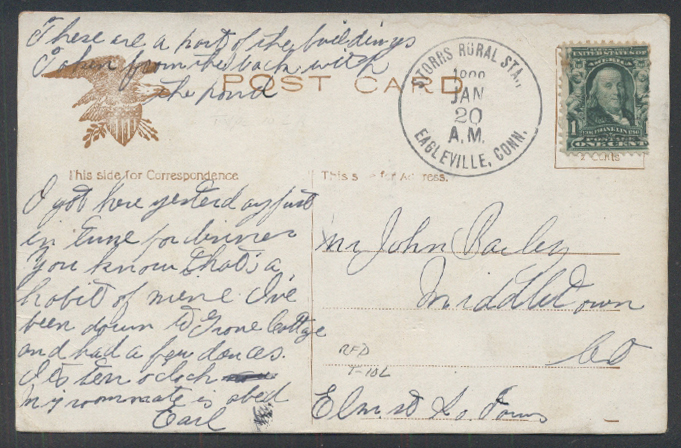 These are a part of the buildings
Taken from the back with
the pond
POST CARD
STORRS RURAL STA.,
JAN
20
A.M.
EAGLEVILLE, CONN.
1
POSTAGE
ONE CENT
This side for Correspondence
This s e for Address.
I got here yesterday just
in time for dinner
you know that's a
habit of mine I've
been down to Grove Cottage
and had a few dances.
Its ten oclock
my roommate is abed
Earl
Mr John Bailey
Middletown
Ct
RFD
T-102
Elm st So. Farms